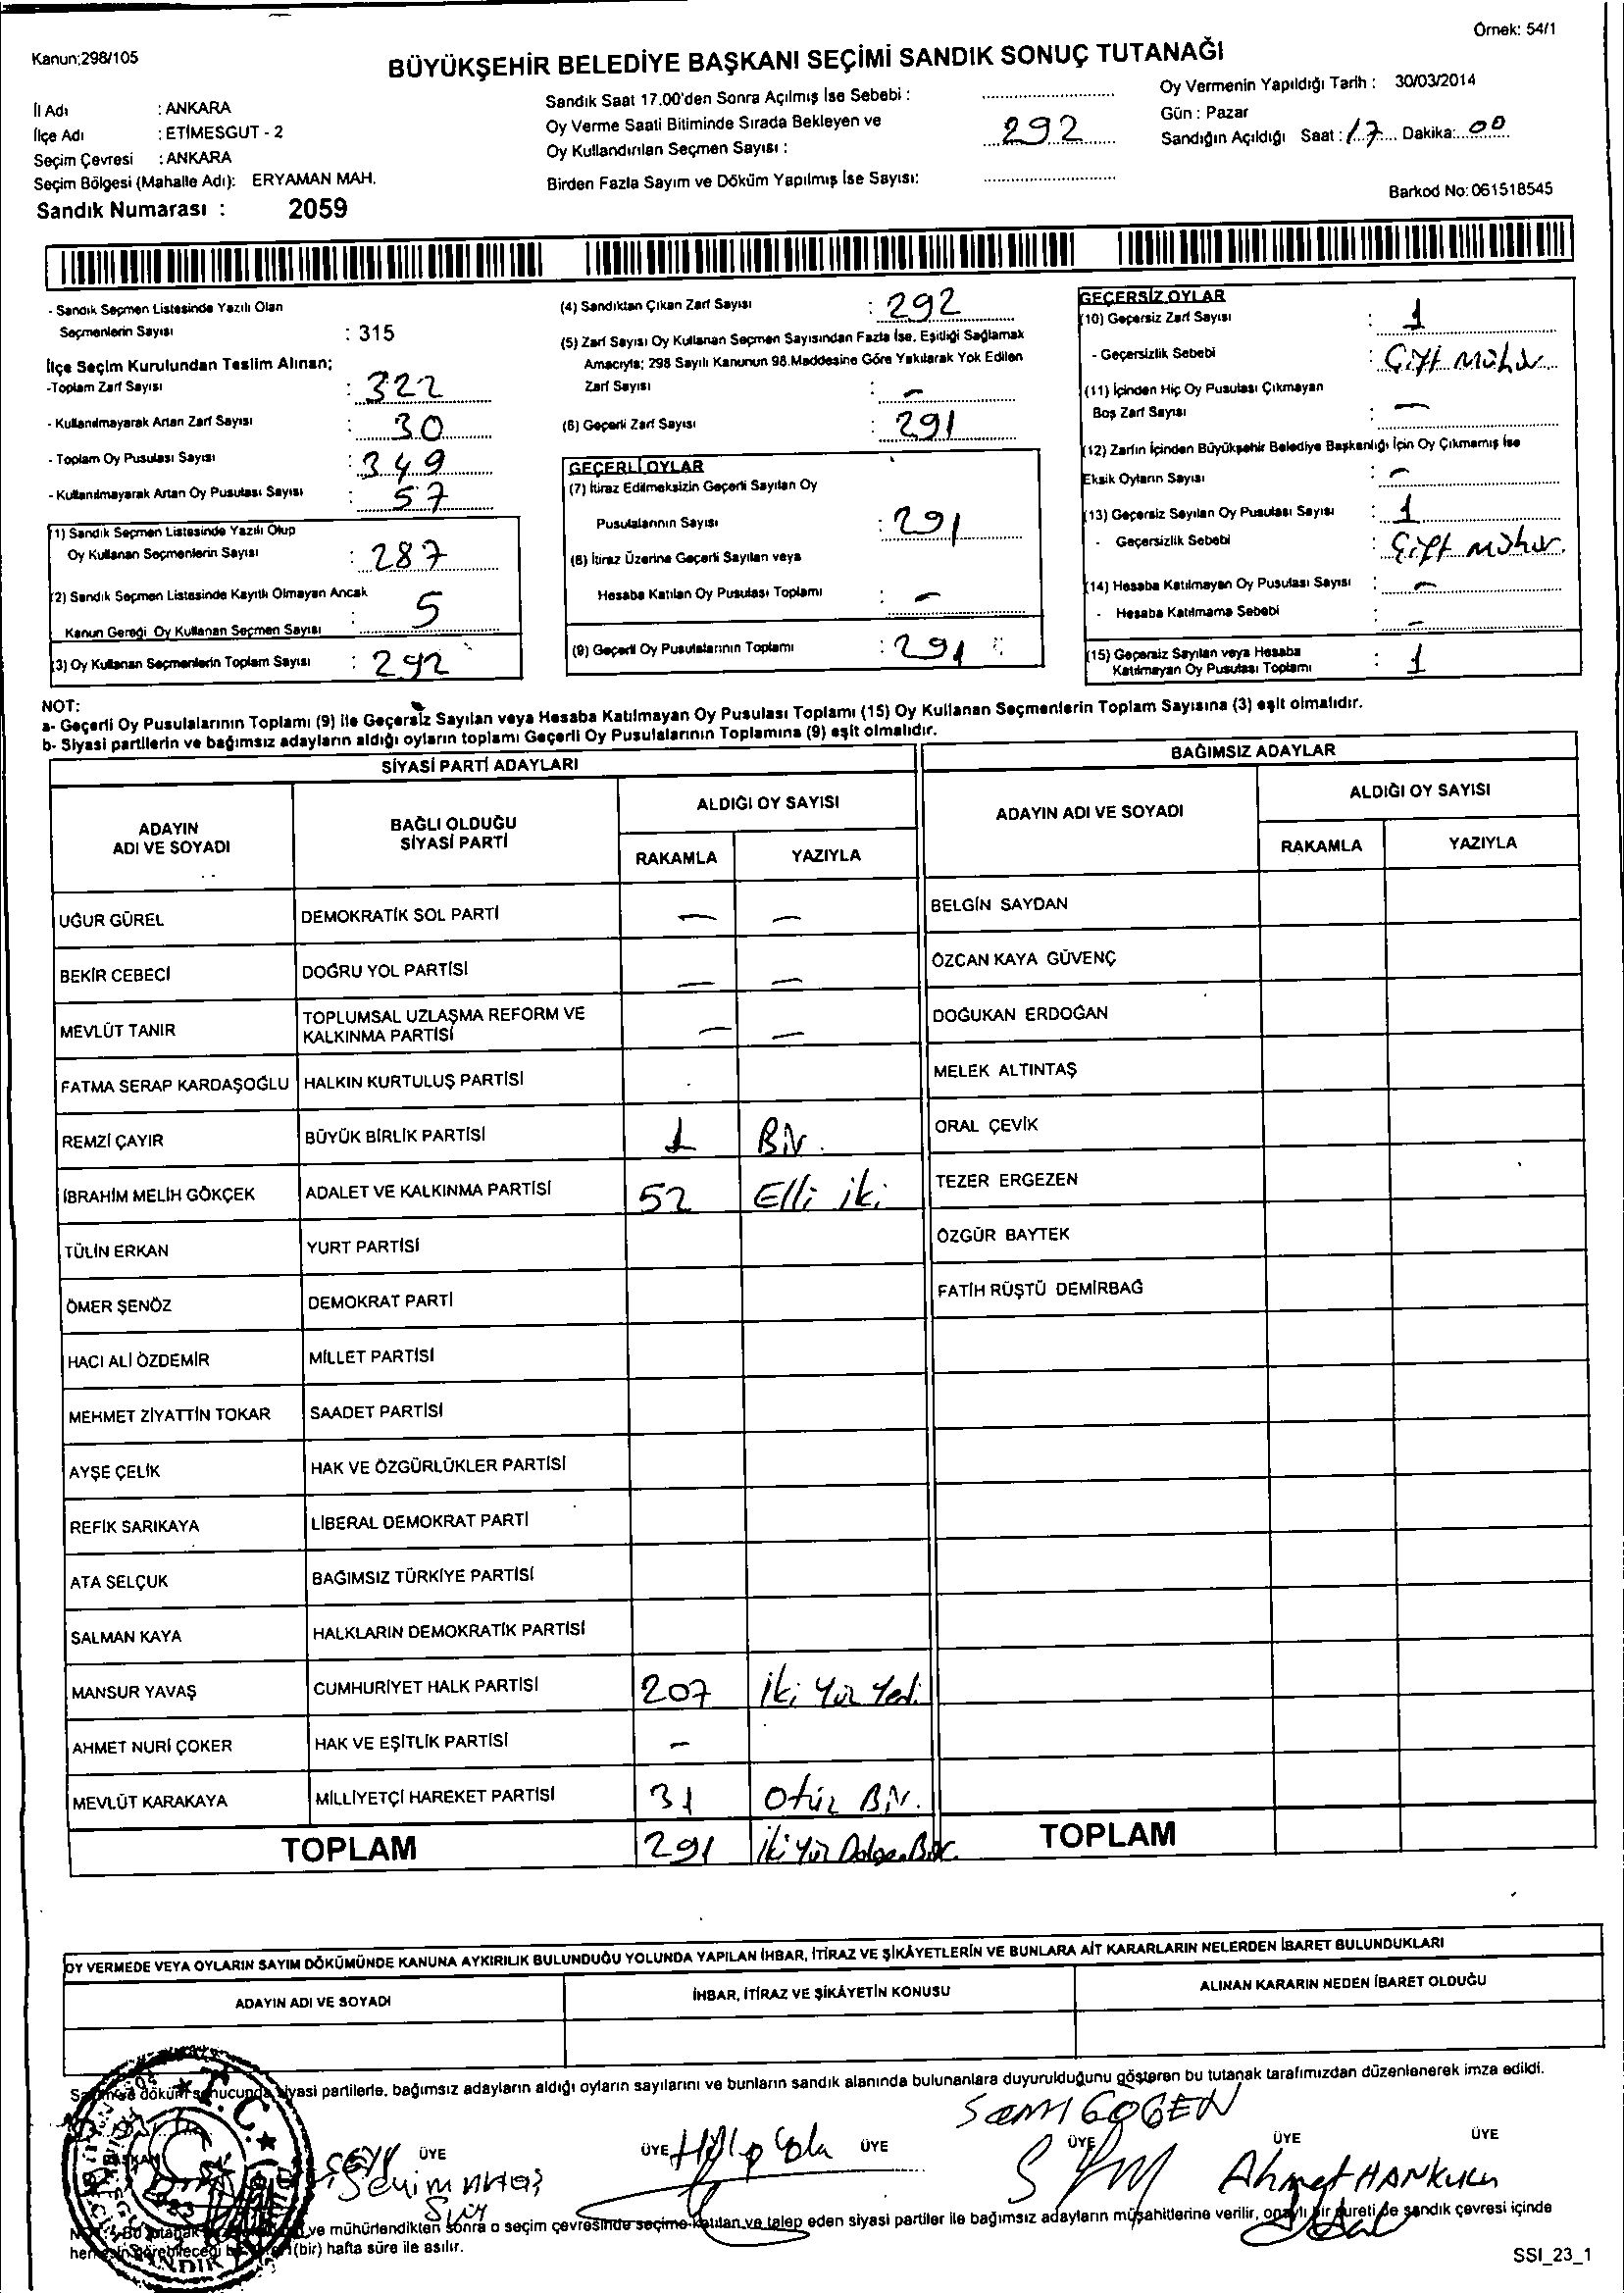 Örnek: 54/1
Kanun;298/105
BÜYÜKŞEHİR BELEDİYE BAŞKANI SEÇİMİ SANDIK SONUÇ TUTANAĞI
İl Adı : ANKARA
İlçe Adı : ETİMESGUT - 2
Seçim Çevresi : ANKARA
Seçim Bölgesi (Mahalle Adı): ERYAMAN MAH.
Sandık Numarası : 2059
Sandık Saat 17.00'den Sonra Açılmış İse Sebebi :
Oy Verme Saati Bitiminde Sırada Bekleyen ve
Oy Kullandırılan Seçmen Sayısı : 292
Birden Fazla Sayım ve Döküm Yapılmış İse Sayısı:
Oy Vermenin Yapıldığı Tarih : 30/03/2014
Gün : Pazar
Sandığın Açıldığı Saat : 17 Dakika: 00
Barkod No: 061518545
- Sandık Seçmen Listesinde Yazılı Olan
Seçmenlerin Sayısı : 315
İlçe Seçim Kurulundan Teslim Alınan;
-Toplam Zarf Sayısı : 322
- Kullanılmayarak Artan Zarf Sayısı : 30
- Toplam Oy Pusulası Sayısı : 349
- Kullanılmayarak Artan Oy Pusulası Sayısı : 57
(1) Sandık Seçmen Listesinde Yazılı Olup
Oy Kullanan Seçmenlerin Sayısı : 287
(2) Sandık Seçmen Listesinde Kayıtlı Olmayan Ancak
Kanun Gereği Oy Kullanan Seçmen Sayısı : 5
(3) Oy Kullanan Seçmenlerin Toplam Sayısı : 292
(4) Sandıktan Çıkan Zarf Sayısı : 292
(5) Zarf Sayısı Oy Kullanan Seçmen Sayısından Fazla İse, Eşitliği Sağlamak
Amacıyla; 298 Sayılı Kanunun 98.Maddesine Göre Yakılarak Yok Edilen
Zarf Sayısı : -
(6) Geçerli Zarf Sayısı : 291
GEÇERLİ OYLAR
(7) İtiraz Edilmeksizin Geçerli Sayılan Oy
Pusulalarının Sayısı : 291
(8) İtiraz Üzerine Geçerli Sayılan veya
Hesaba Katılan Oy Pusulası Toplamı : -
(9) Geçerli Oy Pusulalarının Toplamı : 291
GEÇERSİZ OYLAR
(10) Geçersiz Zarf Sayısı : 1
- Geçersizlik Sebebi : Çift Mühür
(11) İçinden Hiç Oy Pusulası Çıkmayan
Boş Zarf Sayısı : -
(12) Zarfın İçinden Büyükşehir Belediye Başkanlığı İçin Oy Çıkmamış İse
Eksik Oyların Sayısı : -
(13) Geçersiz Sayılan Oy Pusulası Sayısı : 1
- Geçersizlik Sebebi : Çift mühür.
(14) Hesaba Katılmayan Oy Pusulası Sayısı : -
- Hesaba Katılmama Sebebi : -
(15) Geçersiz Sayılan veya Hesaba
Katılmayan Oy Pusulası Toplamı : 1
NOT:
a- Geçerli Oy Pusulalarının Toplamı (9) ile Geçersiz Sayılan veya Hesaba Katılmayan Oy Pusulası Toplamı (15) Oy Kullanan Seçmenlerin Toplam Sayısına (3) eşit olmalıdır.
b- Siyasi partilerin ve bağımsız adayların aldığı oyların toplamı Geçerli Oy Pusulalarının Toplamına (9) eşit olmalıdır.
SİYASİ PARTİ ADAYLARI
ADAYIN ADI VE SOYADI
BAĞLI OLDUĞU SİYASİ PARTİ
ALDIĞI OY SAYISI
RAKAMLA YAZIYLA
UĞUR GÜREL DEMOKRATİK SOL PARTİ - -
BEKİR CEBECİ DOĞRU YOL PARTİSİ - -
MEVLÜT TANIR TOPLUMSAL UZLAŞMA REFORM VE KALKINMA PARTİSİ - -
FATMA SERAP KARDAŞOĞLU HALKIN KURTULUŞ PARTİSİ
REMZİ ÇAYIR BÜYÜK BİRLİK PARTİSİ 1 Bir.
İBRAHİM MELİH GÖKÇEK ADALET VE KALKINMA PARTİSİ 52 Elli iki
TÜLİN ERKAN YURT PARTİSİ
ÖMER ŞENÖZ DEMOKRAT PARTİ
HACI ALİ ÖZDEMİR MİLLET PARTİSİ
MEHMET ZİYATTİN TOKAR SAADET PARTİSİ
AYŞE ÇELİK HAK VE ÖZGÜRLÜKLER PARTİSİ
REFİK SARIKAYA LİBERAL DEMOKRAT PARTİ
ATA SELÇUK BAĞIMSIZ TÜRKİYE PARTİSİ
SALMAN KAYA HALKLARIN DEMOKRATİK PARTİSİ
MANSUR YAVAŞ CUMHURİYET HALK PARTİSİ 207 İki Yüz Yedi
AHMET NURİ ÇOKER HAK VE EŞİTLİK PARTİSİ -
MEVLÜT KARAKAYA MİLLİYETÇİ HAREKET PARTİSİ 31 Otuz Bir.
TOPLAM 291 İki Yüz
BAĞIMSIZ ADAYLAR
ADAYIN ADI VE SOYADI
ALDIĞI OY SAYISI
RAKAMLA YAZIYLA
BELGİN SAYDAN
ÖZCAN KAYA GÜVENÇ
DOĞUKAN ERDOĞAN
MELEK ALTINTAŞ
ORAL ÇEVİK
TEZER ERGEZEN
ÖZGÜR BAYTEK
FATİH RÜŞTÜ DEMİRBAĞ
TOPLAM
OY VERMEDE VEYA OYLARIN SAYIM DÖKÜMÜNDE KANUNA AYKIRILIK BULUNDUĞU YOLUNDA YAPILAN İHBAR, İTİRAZ VE ŞİKÂYETLERİN VE BUNLARA AİT KARARLARIN NELERDEN İBARET BULUNDUKLARI
ADAYIN ADI VE SOYADI
İHBAR, İTİRAZ VE ŞİKÂYETİN KONUSU
ALINAN KARARIN NEDEN İBARET OLDUĞU
siyasi partilerle, bağımsız adayların aldığı oyların sayılarını ve bunların sandık alanında bulunanlara duyurulduğunu gösteren bu tutanak tarafımızdan düzenlenerek imza edildi.
T.C.
ÜYE ÜYE ÜYE ÜYE ÜYE ÜYE
ve mühürlendikten sonra o seçim çevresinde seçime katılan ve talep eden siyasi partiler ile bağımsız adayların müşahitlerine verilir, onaylı bir sureti de sandık çevresi içinde
(bir) hafta süre ile asılır.
SSI_23_1